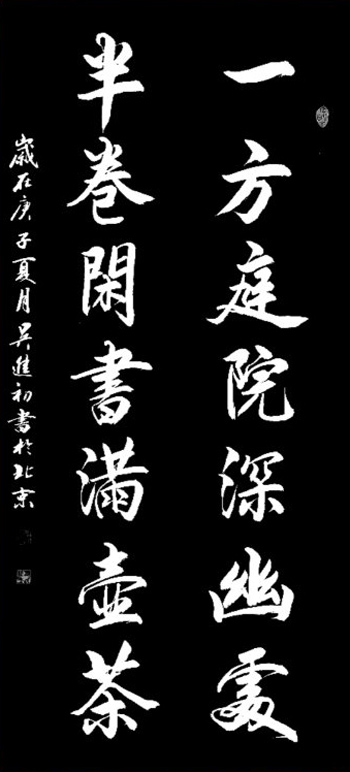 一方庭院深幽處
半卷閑書滿壺茶
歲在庚子夏月吳進初書於北京